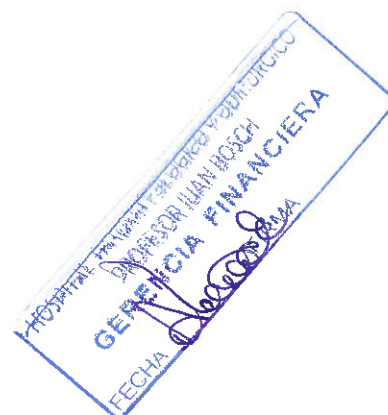 HOSPITAL TRAUMATOLOGICO Y QUIRURGICO
PROFESOR JUAN BOSCH
GERENCIA FINANCIERA
FECHA FIRMA